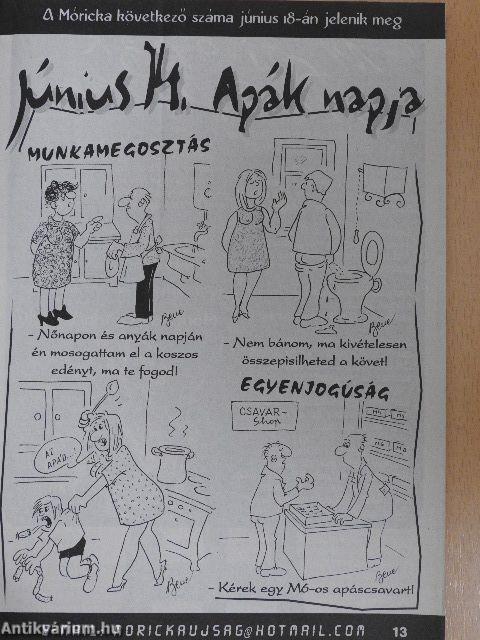 A Móricka következő száma június 18-án jelenik meg
Június 14. Apák napja
MUNKAMEGOSZTÁS
- Nőnapon és anyák napján
én mosogattam el a koszos
edényt, ma te fogod!
Bene
- Nem bánom, ma kivételesen
összepisilheted a követ!
Bene
AZ
APÁD...
Bene
EGYENJOGÚSÁG
CSAVAR-
Shop
M5
M6
- Kérek egy M6-os apáscsavart!
Bene
MORICKAUJSAG@HOTMAIL.COM
13
Antikvárium.hu